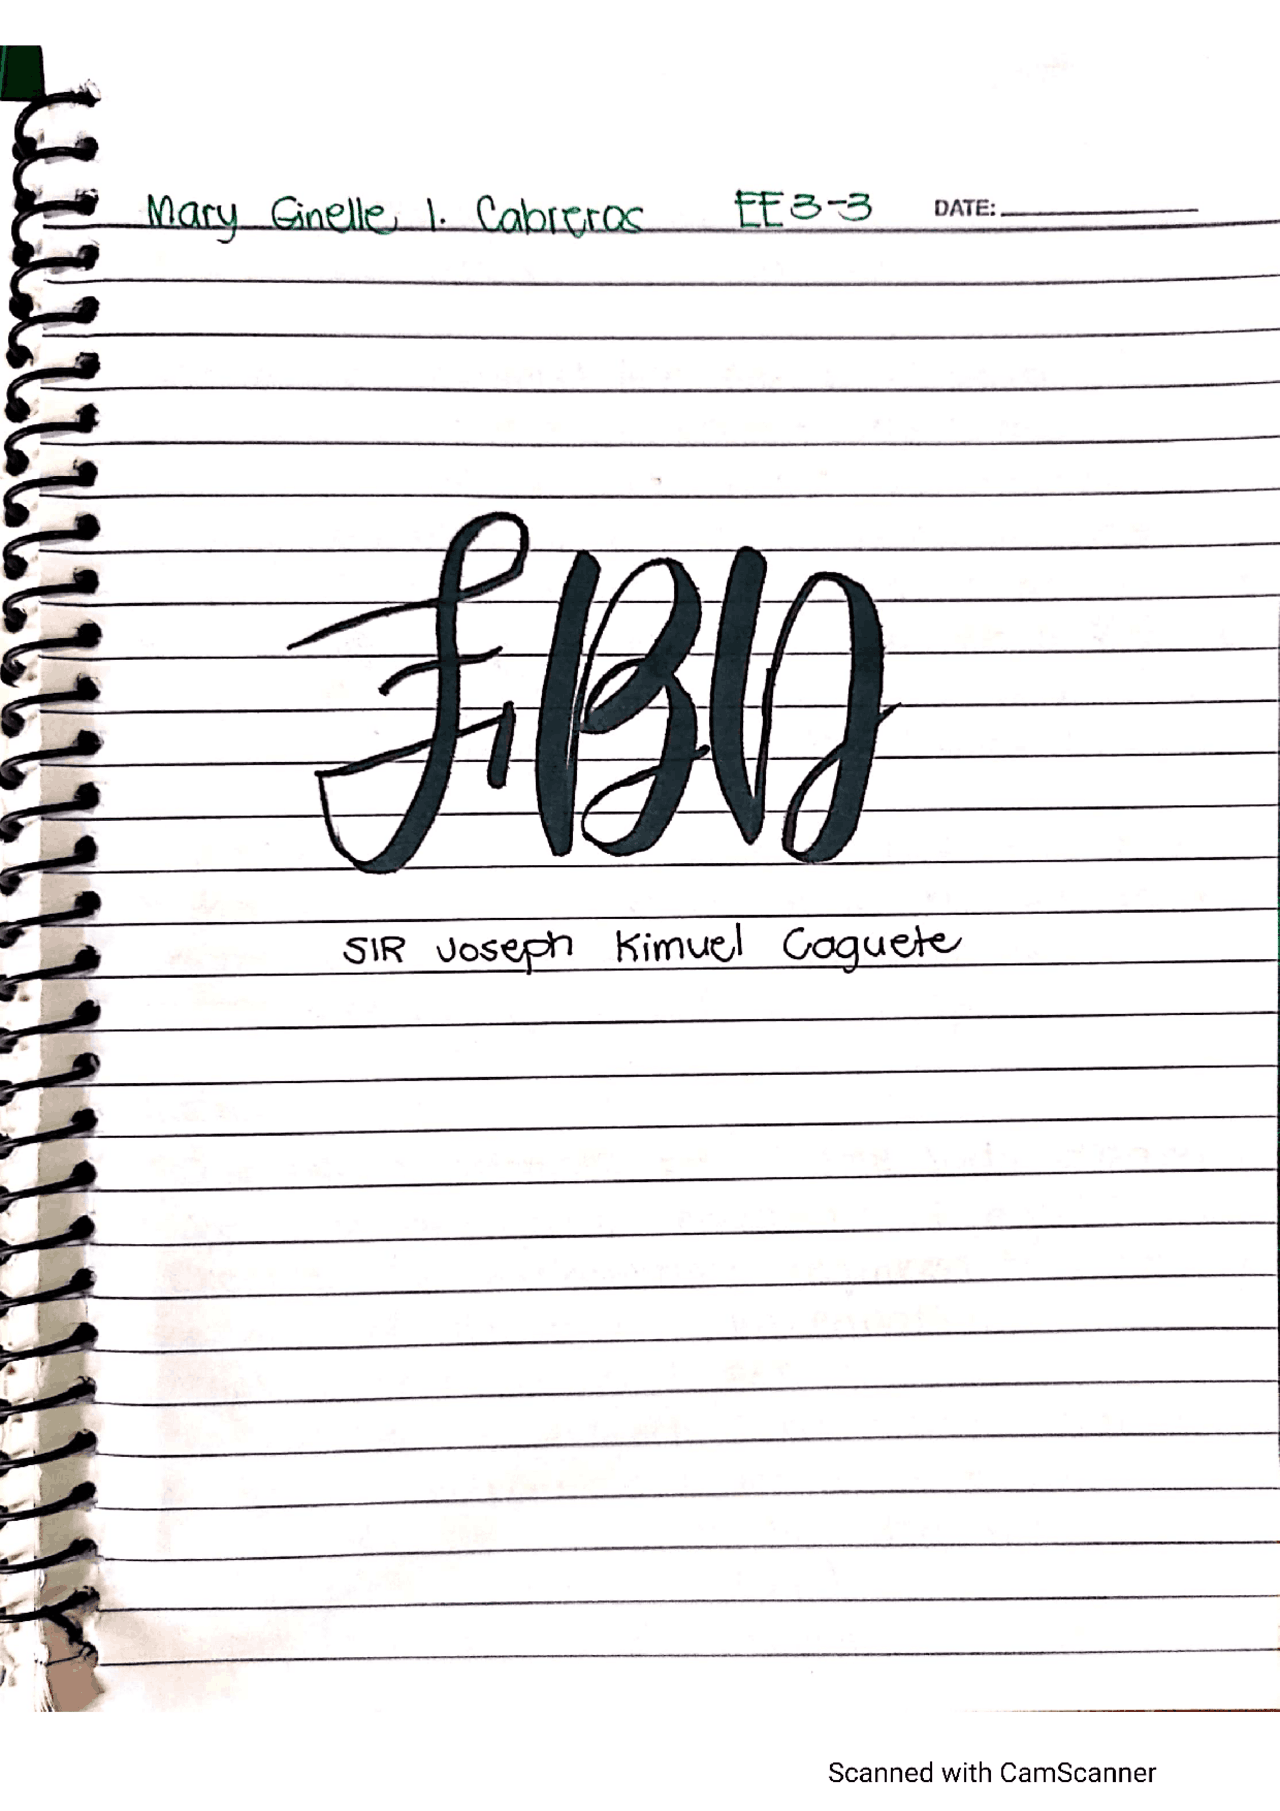 Mary Ginelle I. Cabreros EE 3-3 DATE:
FiBD
SIR Joseph Kimuel Caguete
Scanned with CamScanner